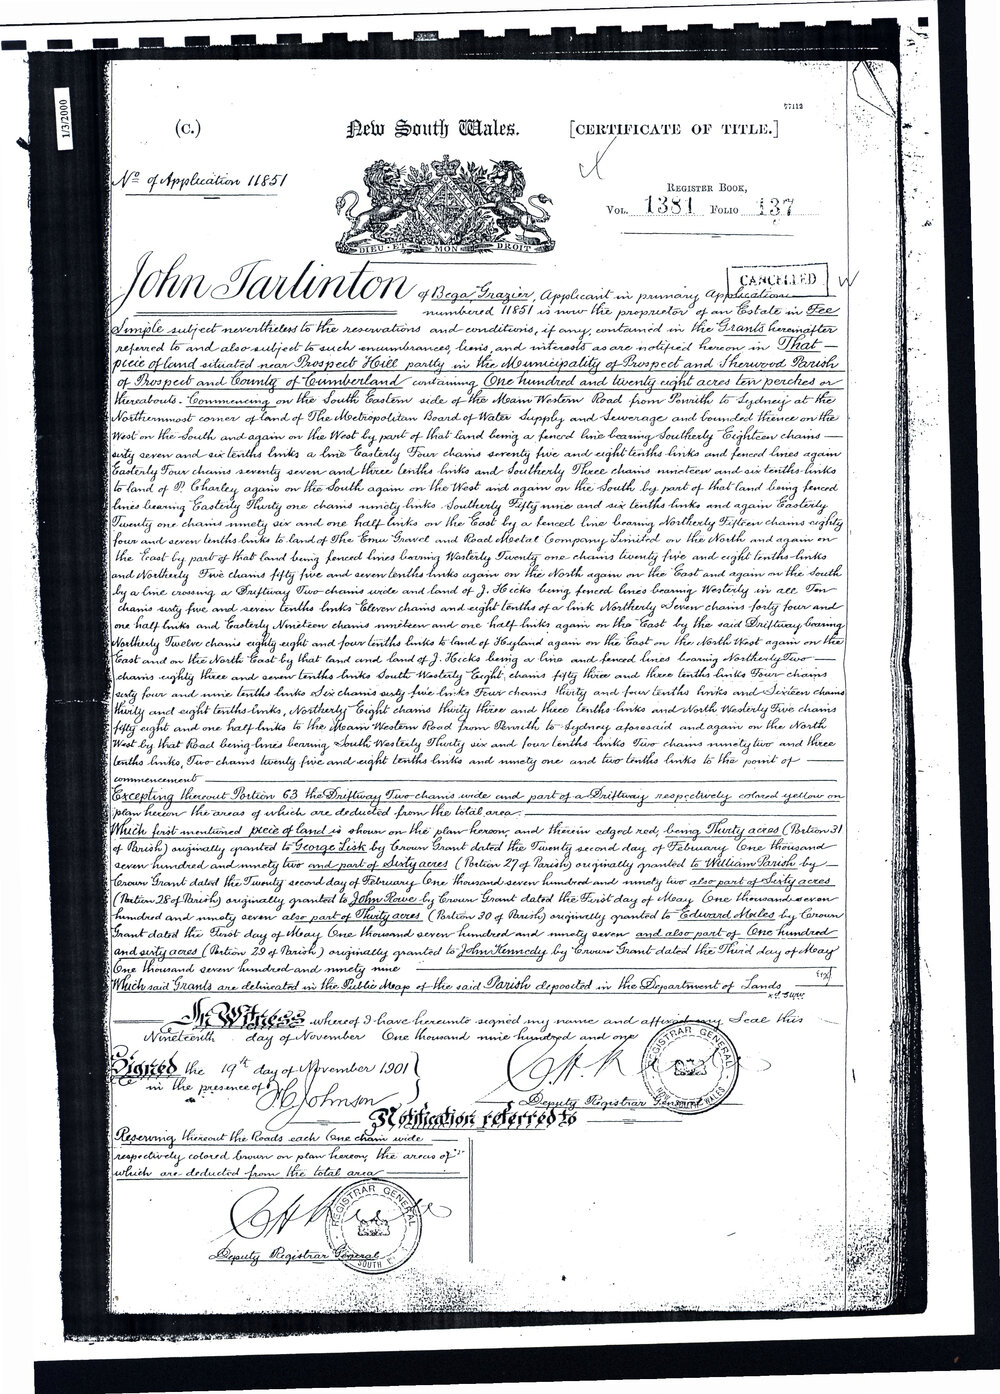 1/3/2000
77112
(C.) New South Wales. [CERTIFICATE OF TITLE.]
No of Application 11851
REGISTER BOOK,
VOL. 1381 FOLIO 137
DIEU ET MON DROIT
CANCELLED
John Tarlinton of Bega Grazier, Applicant in primary Application
numbered 11851 is now the proprietor of an Estate in Fee
Simple subject nevertheless to the reservations and conditions, if any, contained in the Grants hereinafter
referred to and also subject to such encumbrances, liens, and interests as are notified hereon in That
piece of land situated near Prospect Hill partly in the Municipality of Prospect and Sherwood Parish
of Prospect and County of Cumberland containing One hundred and twenty eight acres ten perches or
thereabouts. Commencing on the South Eastern side of the Main Western Road from Penrith to Sydney at the
Northernmost corner of land of The Metropolitan Board of Water Supply and Sewerage and bounded thence on the
West on the South and again on the West by part of that land being a fenced line bearing Southerly Eighteen chains
sixty seven and six tenths links a line Easterly Four chains seventy five and eight tenths links and fenced lines again
Easterly Four chains seventy seven and three tenths links and Southerly Three chains nineteen and six tenths links
to land of P. Charley again on the South again on the West and again on the South by part of that land being fenced
lines bearing Easterly Thirty one chains ninety links Southerly Fifty nine and six tenths links and again Easterly
Twenty one chains ninety six and one half links on the East by a fenced line bearing Northerly Fifteen chains eighty
four and seven tenths links to land of The Emu Gravel and Road Metal Company Limited on the North and again on
the East by part of that land being fenced lines bearing Westerly Twenty one chains twenty five and eight tenths links
and Northerly Five chains fifty five and seven tenths links again on the North again on the East and again on the South
by a line crossing a Driftway Two chains wide and land of J. Hicks being fenced lines bearing Westerly in all Ten
chains sixty five and seven tenths links Eleven chains and eight tenths of a link Northerly Seven chains forty four and
one half links and Easterly Nineteen chains nineteen and one half links again on the East by the said Driftway bearing
Northerly Twelve chains eighty eight and four tenths links to land of Hyland again on the East on the North West again on the
East and on the North East by that land and land of J. Hicks being a line and fenced lines bearing Northerly Two
chains eighty three and seven tenths links South Westerly Eight chains fifty three and three tenths links Four chains
sixty four and nine tenths links Six chains sixty five links Four chains thirty and four tenths links and Sixteen chains
thirty and eight tenths links, Northerly Eight chains thirty three and three tenths links and North Westerly Five chains
fifty eight and one half links to the Main Western Road from Penrith to Sydney aforesaid and again on the North
West by that Road being lines bearing South Westerly Thirty six and four tenths links Two chains ninety two and three
tenths links, Two chains twenty five and eight tenths links and ninety one and two tenths links to the point of
commencement
Excepting thereout Portion 63 the Driftway Two chains wide and part of a Driftway respectively colored yellow on
plan hereon the areas of which are deducted from the total area.
Which first mentioned piece of land is shown on the plan hereon, and therein edged red, being Thirty acres (Portion 31
of Parish) originally granted to George Lisk by Crown Grant dated the Twenty second day of February One thousand
seven hundred and ninety two and part of Sixty acres (Portion 27 of Parish) originally granted to William Parish by
Crown Grant dated the Twenty second day of February One thousand seven hundred and ninety two also part of Sixty acres
(Portion 28 of Parish) originally granted to John Rowe by Crown Grant dated the First day of May One thousand seven
hundred and ninety seven also part of Thirty acres (Portion 30 of Parish) originally granted to Edward Miles by Crown
Grant dated the First day of May One thousand seven hundred and ninety seven and also part of One hundred
and sixty acres (Portion 29 of Parish) originally granted to John Kennedy by Crown Grant dated the Third day of May
One thousand seven hundred and ninety nine
Which said Grants are delineated in the Public Map of the said Parish deposited in the Department of Lands
In Witness whereof I have hereunto signed my name and affixed my Seal this
Nineteenth day of November One thousand nine hundred and one
Signed the 19th day of November 1901
in the presence of
Johnson
Deputy Registrar General
REGISTRAR GENERAL NEW SOUTH WALES
Notification referred to
Reserving thereout the Roads each One chain wide
respectively colored brown on plan hereon, the areas of
which are deducted from the total area
REGISTRAR GENERAL
SOUTH
Deputy Registrar General